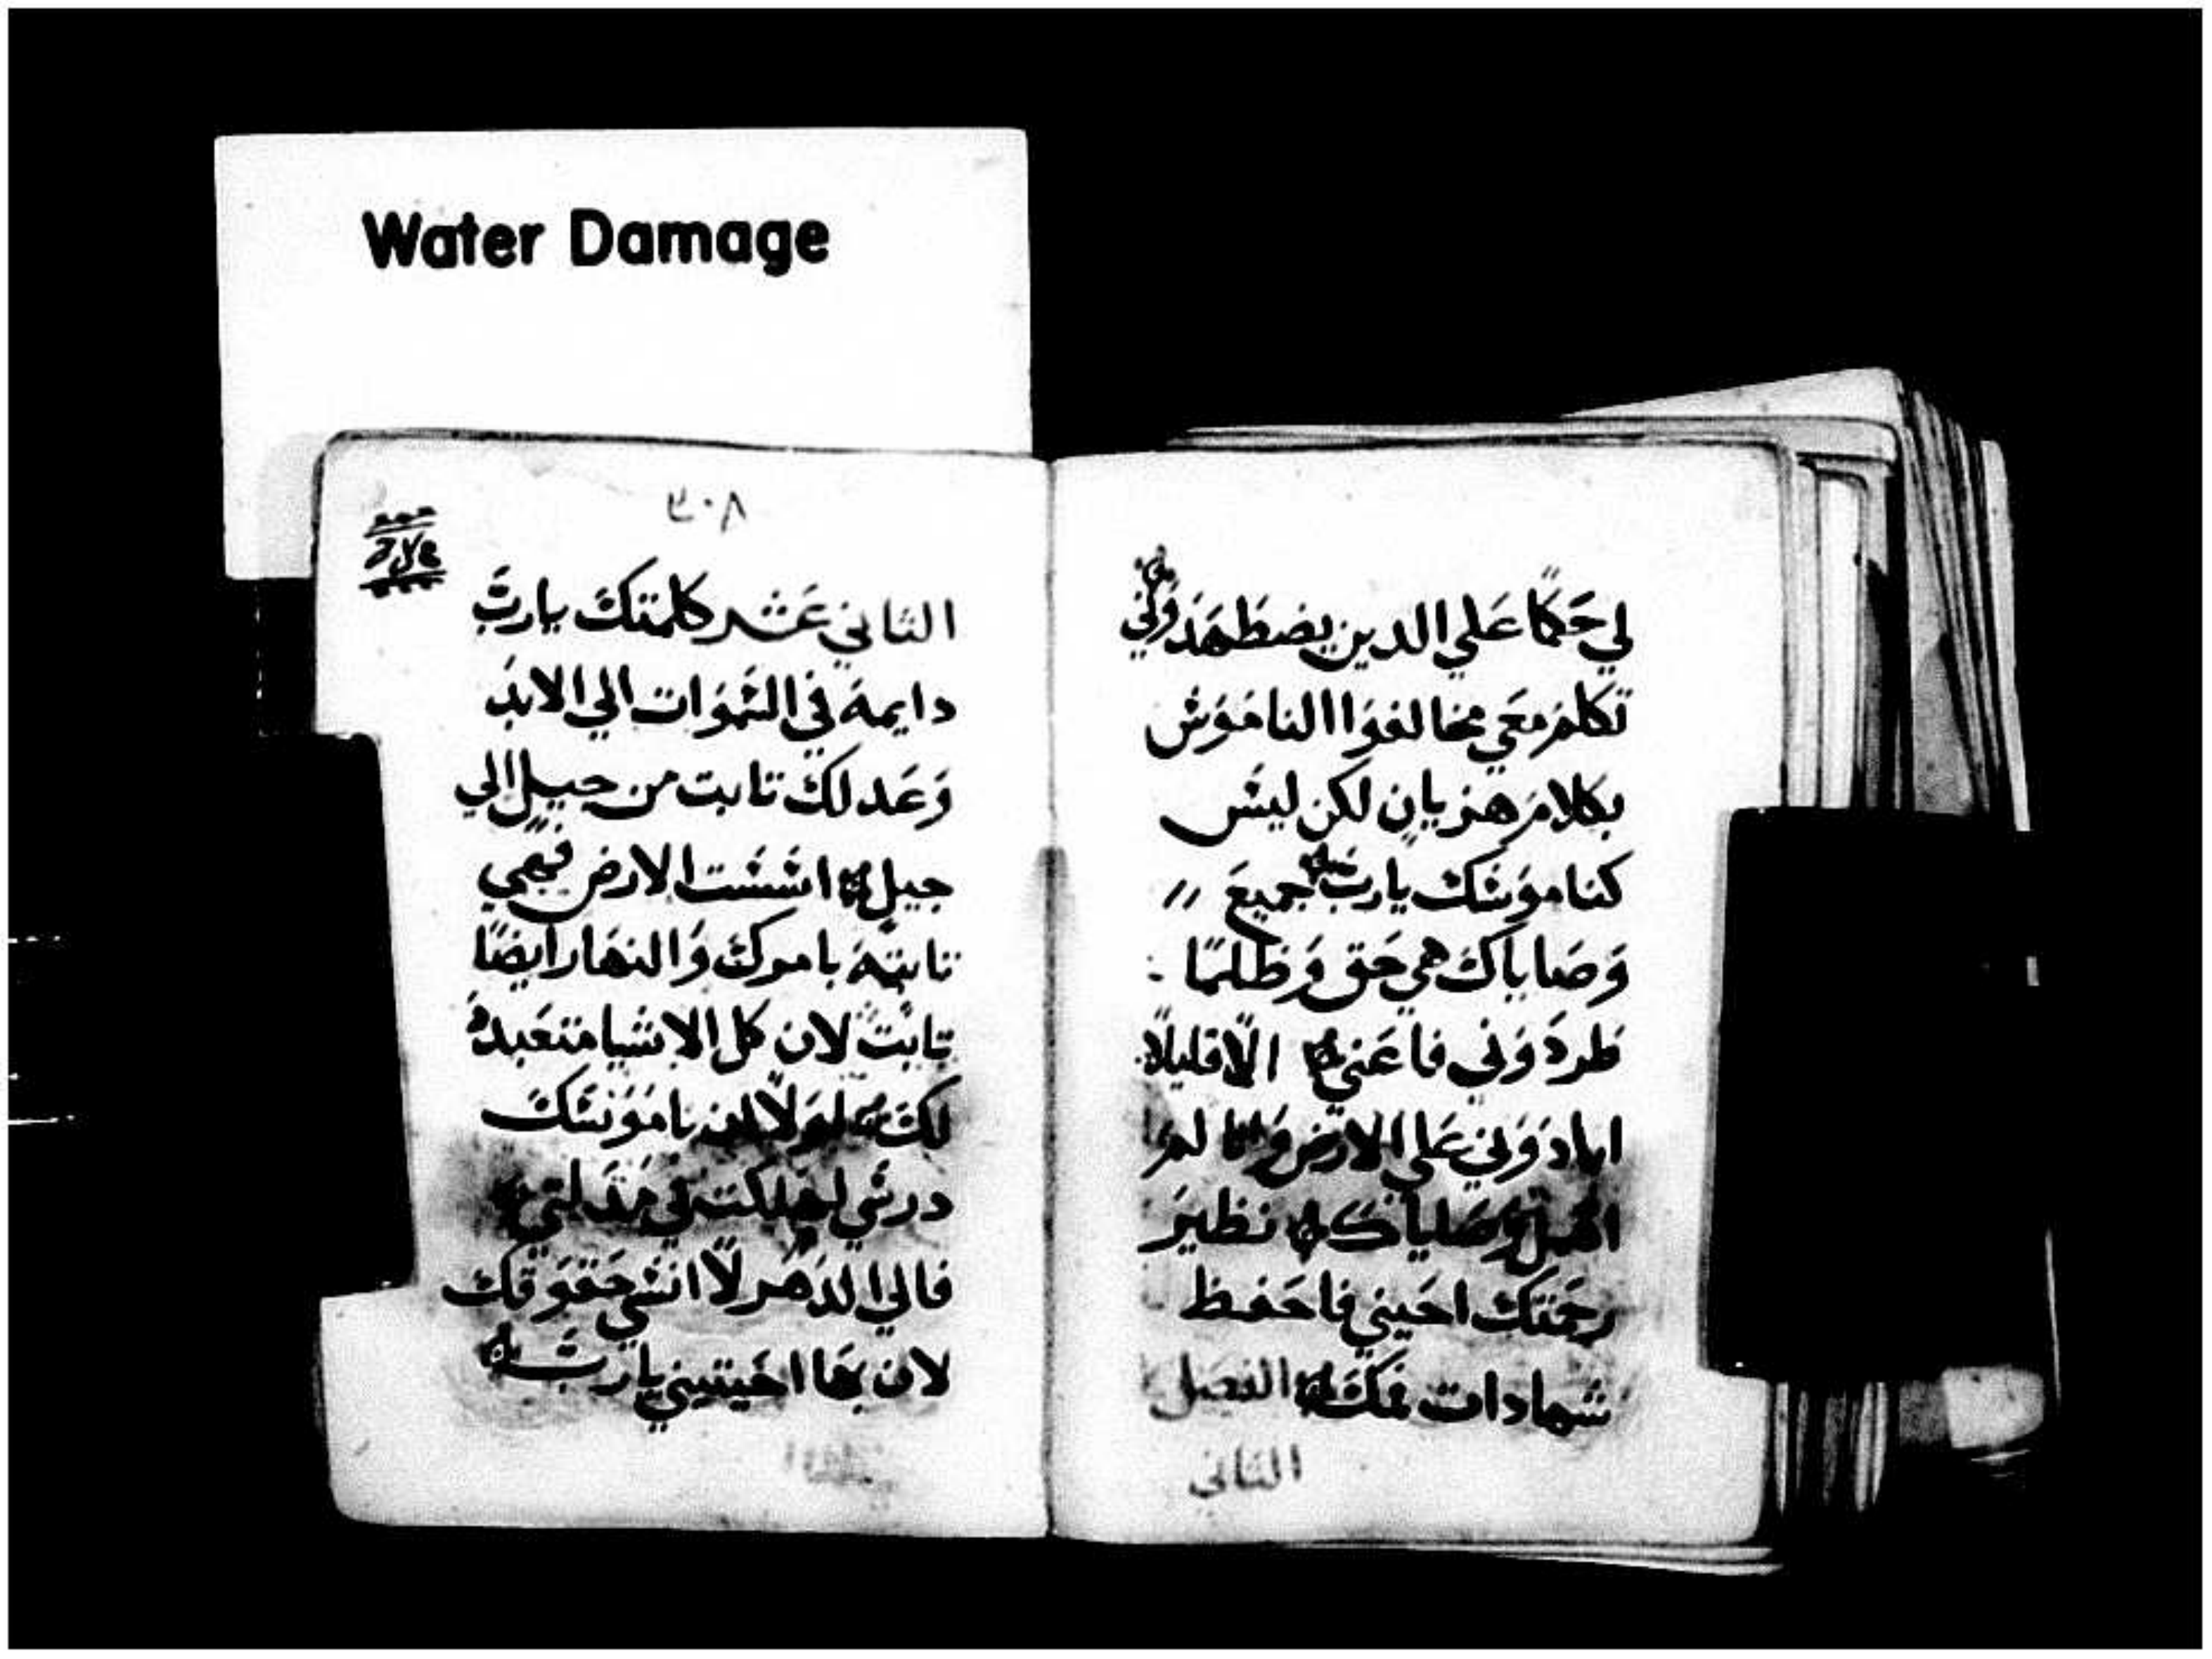 Water Damage
لي حَكمًا عَلي الدين يضطَهدَوني
تكلمَ معَي مخالفوَا الناموَش
بكلامَ هَزيان لكن ليسَ
كناموَسَك يارب جميعَ
وَصَاياك هي حَق وَظلمًا
طردَوَني فاعَني الا قليلاً
ابادَوَني عَلي الارَض وَانا لمَ
اهمل وَصَاياك نظيرَ
رحمَتك احَيني فاحَفظ
شهادات فمكَ الفصَل
الثاني
٣٠٨
الثاني عَشر كلمتكَ يارب
دايمهَ في السَموَات الي الابدَ
وَعَدلك تابت من جيل الي
جيل اسَسَت الارض فهَي
تابتهَ بامرك وَالنهَار ايضًا
تابت لان كل الاشيا متعَبدهَ
لكَ لوَلا ان ناموَسَكَ
درسَي لهلكت في مذَلتي
فالي الدَهرَ لا انسَي حَقوَقك
لان بهَا احَيتني يارب